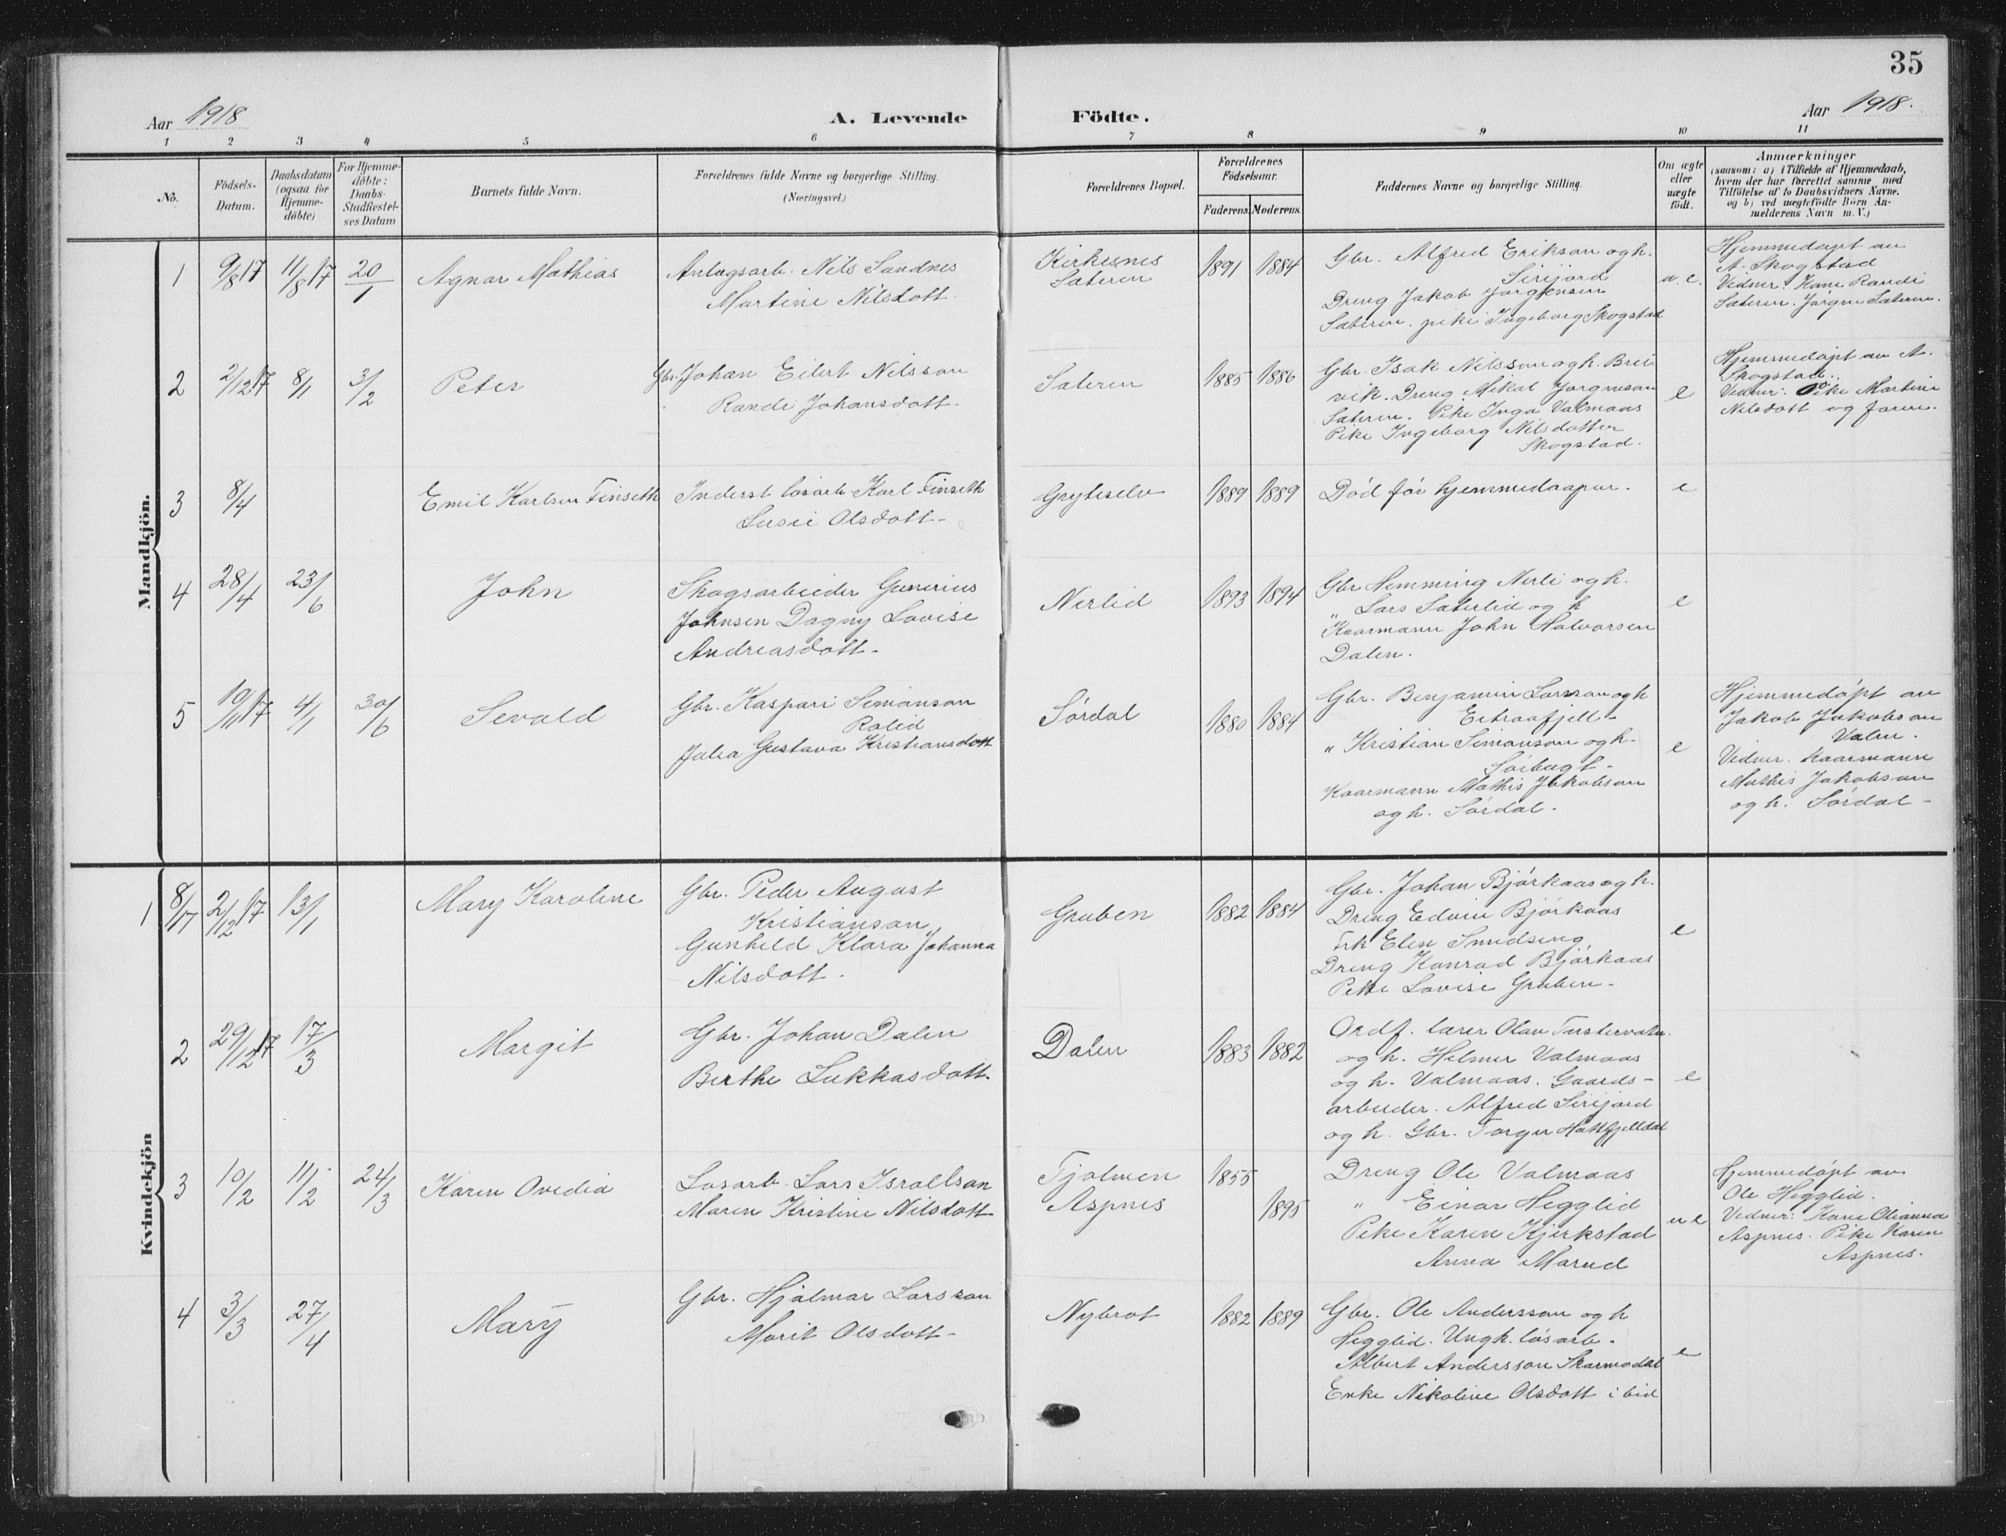 35
Aar 1918
A. Levende Födte.
Aar 1918.
1 2 3 4 5 6 7 8 9 10 11
No.
Födsels-
Datum.
Daabsdatum
(ogsaa for
Hjemme-
döbte)
For Hjemme-
döbte:
Daabs-
Stadfæstel-
ses Datum
Barnets fulde Navn.
Forældrenes fulde Navne og borgerlige Stilling.
(Næringsvei.)
Forældrenes Bopæl.
Forældrenes
Födselsaar.
Faderens. Moderens.
Faddernes Navne og borgerlige Stilling.
Om ægte
eller
uægte
födt.
Anmærkninger
(saasom: a) i Tilfælde af Hjemmedaab,
hvem der har forrettet samme med
Tilföielse af to Daabsvidners Navne,
og b) ved uægtefödte Börn An-
melderens Navn m. V.)
Mandkjön.
1 9/8 17 11/8 17 20/1 Agnar Mathias
Anlegsarb. Nils Sandnes
Martine Nilsdott.
Kirkesnes
Sæteren
1891 1884
Gbr. Alfred Erikson og h.
Sirijord
Dreng Jakob Jørgensen
Sæteren. pike Ingeborg Skogstad
u. e.
Hjemmedøpt av
A. Skogstad
Vidner: Kone Randi
Sæteren. Jørgen Sæteren.
2 2/12 17 8/1 3/2 Peter
Gbr. Johan Eilert Nilsson
Randi Johansdott.
Sæteren
1885 1886
Gbr. Isak Nilsson og h. Brei
vik. Dreng Mikal Jørgensen
Sæteren. Pike Inga Valmaas
Pike Ingeborg Nilsdotter
Skogstad.
e
Hjemmedøpt av A.
Skogstad.
Vidner: Pike Martine
Nilsdott og faren.
3 8/4 Emil Karlsen Finseth
Inderst løsarb. Karl Finseth
Lusie Olsdott.
Gryteselv
1889 1889
Død før hjemmedaapen.
e
4 28/4 23/6 John
Skogsarbeider Gunerius
Johnsen Dagny Lovise
Andreasdott.
Nerlid
1893 1894
Gbr Hemming Nerli og h.
" Lars Sæterlid og h
Kaarmann John Halvorsen
Dalen.
e
5 10/11 17 4/1 30/6 Sevald
Gbr. Kaspari Simonson
Rølid
Julia Gustava Kristiansdott
Sørdal
1880 1884
Gbr. Benjamin Larsson og h
Eitraafjell.
" Kristian Simonson og h.
Sørbugt.
Kaarmann Mathis Jakobson
og h. Sørdal.
e
Hjemmedøpt av
Jakob Jakobson
Valen.
Vidner. Kaarmann
Mathis Jakobson
og h. Sørdal.
Kvindekjön
1 8/17 2/12 17 13/1 Mary Karoline
Gbr. Peder August
Kristianson
Gunhild Klara Johanna
Nilsdott.
Gruben
1882 1884
Gbr. Johan Bjørkaas og h.
Dreng Edvin Bjørkaas
Frk Elen Smedseng
Dreng Konrad Bjørkaas
Pike Lovise Gruben.
e
2 29/12 17 17/3 Margit
Gbr. Johan Dalen
Berthe Lukkasdott.
Dalen
1883 1882
Ordf. lærer Olav Tustervatn
og h. Helmer Valmaas
og h. Valmaas. Gaards-
arbeider. Alfred Sirijord
og h. Gbr. Torger Hatfjelldal
e
3 10/2 11/2 24/3 Karen Ovedia
Løsarb. Lars Israelson
Maren Kristine Nilsdott
Tjolmen
Aspnes
1855
1895
Dreng Ole Valmaas
" Einar Hegglid
Pike Karen Kjerkstad
Anna Marud
u e
Hjemmedøpt av
Ole Hegglid.
Vidner: Kone Olianna
Aspnes. Pike Karen
Aspnes.
4 3/3 27/4 Mary
Gbr. Hjalmar Larsson
Marit Olsdott.
Nybrot
1882 1889
Gbr. Ole Andersson og h
Hegglid. Ungk. løsarb.
Albert Andersson Skarmodal
Enke Nikoline Olsdott ibid
e